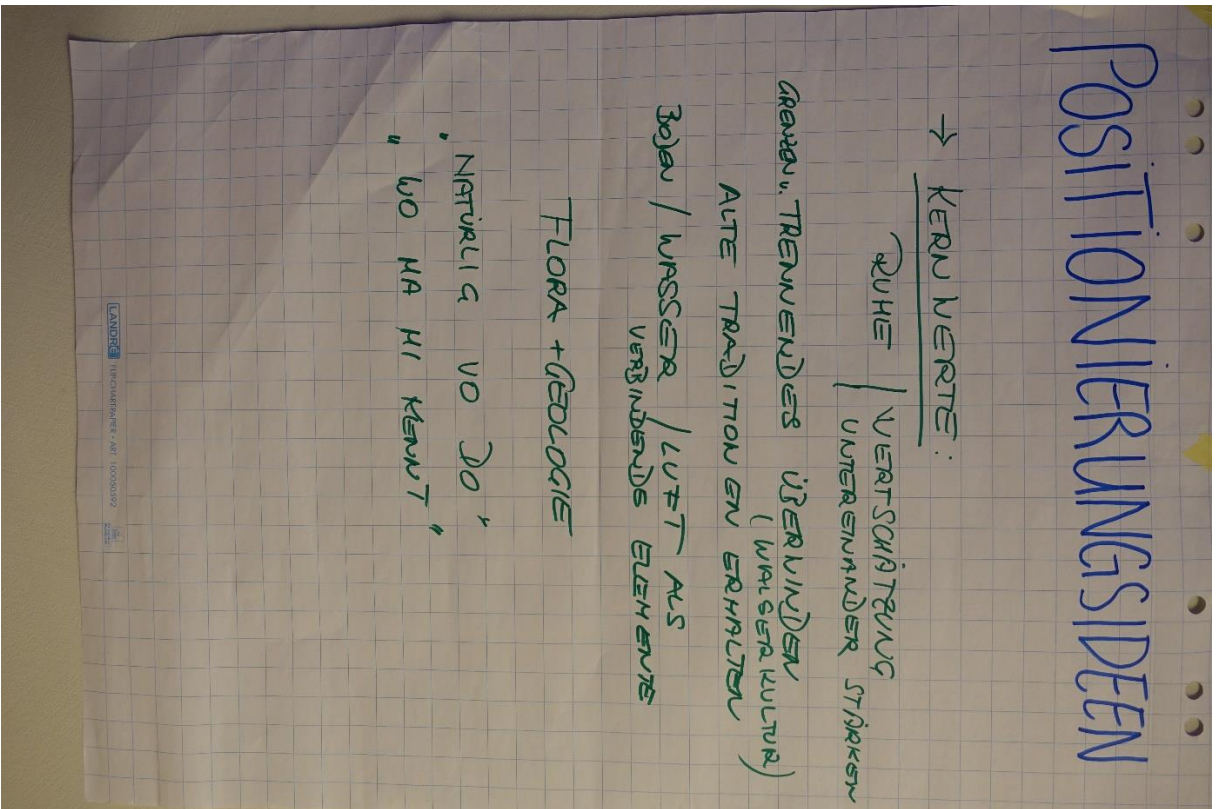 POSITIONIERUNGSIDEEN
→ KERNWERTE:
RUHE / WERTSCHÄTZUNG
UNTEREINANDER STÄRKEN
GRENZEN „ TRENNENDES ÜBERWINDEN
(WALSERKULTUR)
ALTE TRADITIONEN ERHALTEN
BODEN / WASSER / LUFT ALS
VERBINDENDE ELEMENTE
FLORA + GEOLOGIE
" NATÜRLIG VO DO "
" WO MA MI KENNT "
LANDRÉ FLIPCHARTPAPER • ART. 100050592